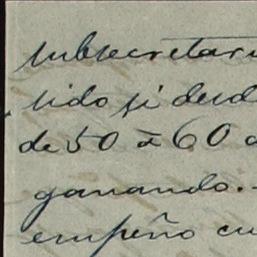 subsecretari
sido si desd
de 50 à 60 a
ganando.-
empeño cu